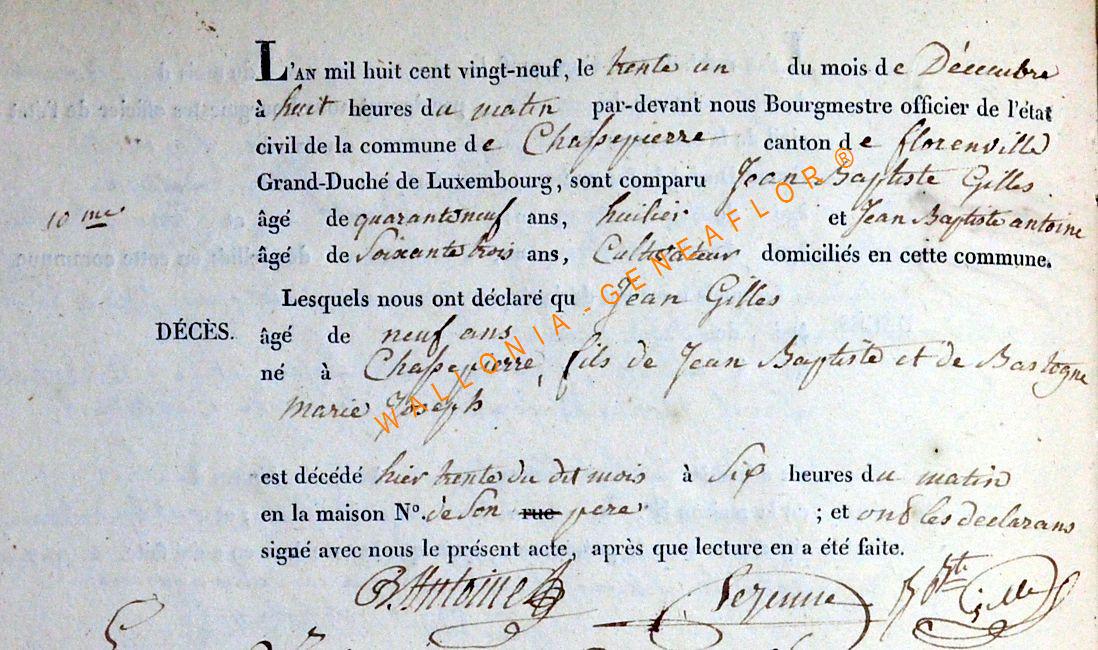 L'AN mil huit cent vingt-neuf, le trente un du mois de Décembre
à huit heures du matin par-devant nous Bourgmestre officier de l'état
civil de la commune de Chassepierre canton de florenville
Grand-Duché de Luxembourg, sont comparu Jean Baptiste Gilles
10 me âgé de quaranteneuf ans, huilier et Jean Baptiste antoine
âgé de Soixante trois ans, Cultivateur domiciliés en cette commune.
Lesquels nous ont déclaré qu Jean Gilles
DÉCÈS. âgé de neuf ans
né à Chassepierre, fils de Jean Baptiste et de Bastogne
marie Joseph
est décédé hier trente du dit mois à Six heures du matin
en la maison No. de Son rue pere ; et ont les declarans
signé avec nous le présent acte, après que lecture en a été faite.
B. Antoine Bte Gilles
WALLONIA-GENEAFLOR®